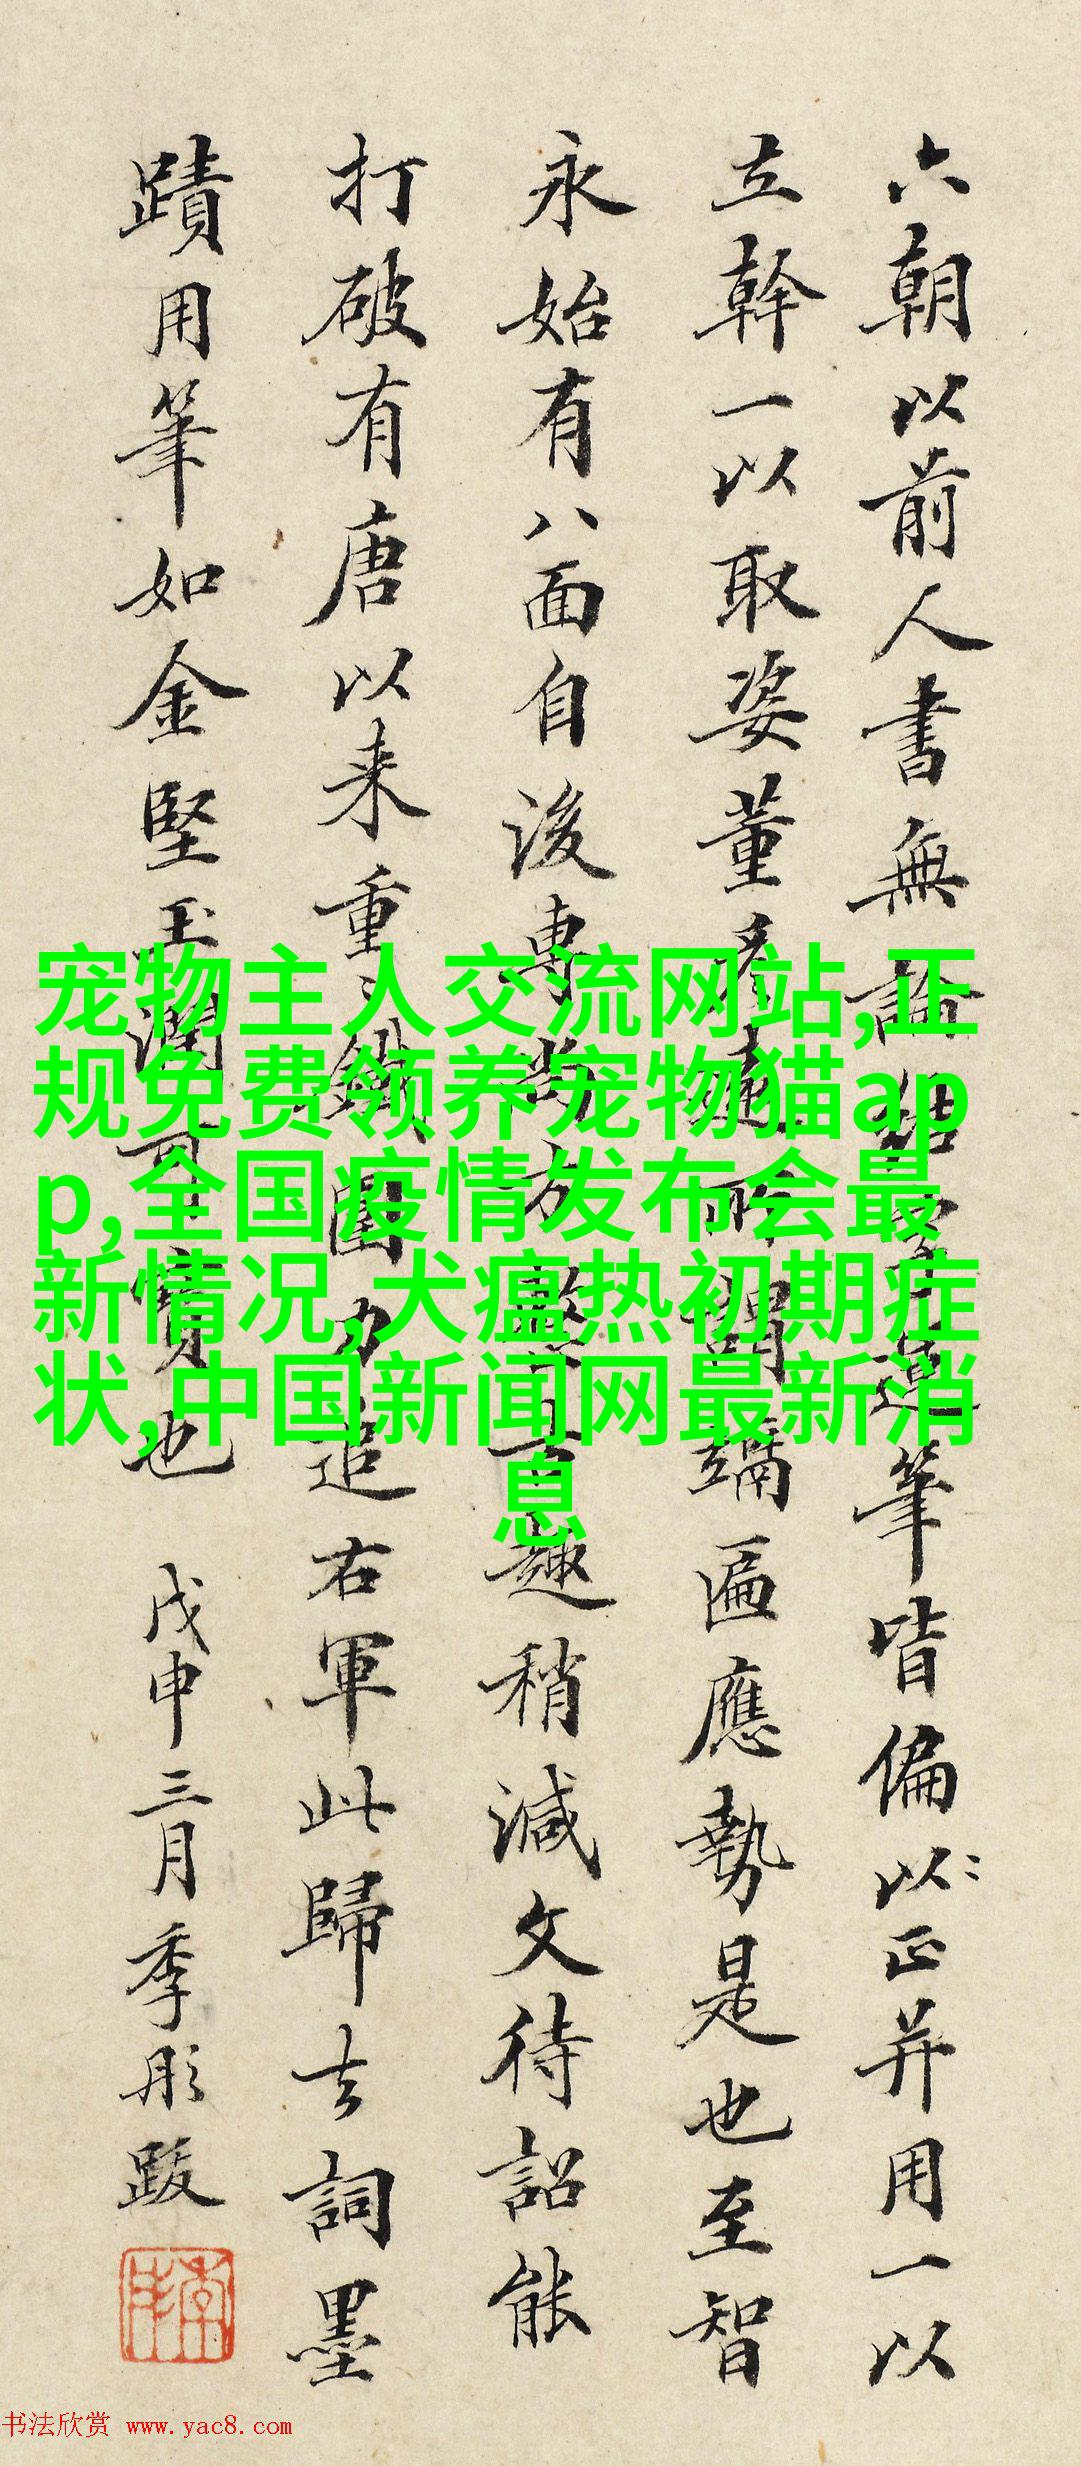 六朝以前人書無論結字運筆皆偏以正并用一以
立幹一以取姿董彥遠所謂端匾應勢是也至智
永始有八面自後專尚方整古趣稍減文待詔能
打破有唐以来重〻鐵圍力追右軍此歸去詞墨
蹟用筆如金堅玉潤可寶也 戊申三月季彤跋
宠物主人交流网站,正
规免费领养宠物猫ap
p,全国疫情发布会最
新情况,犬瘟热初期症
状,中国新闻网最新消
息
书法欣赏 www.yac8.com